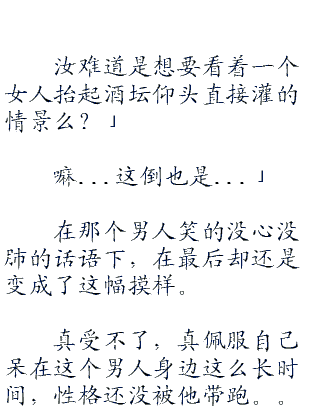 汝难道是想要看着一个
女人抬起酒坛仰头直接灌的
情景么？」
嘛...这倒也是...」
在那个男人笑的没心没
肺的话语下，在最后却还是
变成了这幅摸样。
真受不了，真佩服自己
呆在这个男人身边这么长时
间，性格还没被他带跑。。